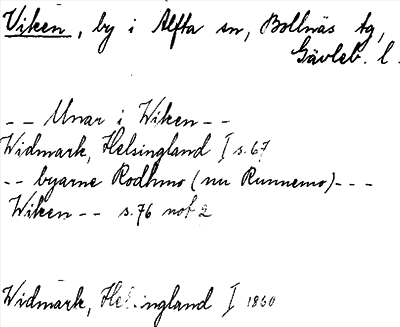 Viken, by i Alfta sn, Bollnäs tg,
Gävleb. l.
-- Unar i Wiken --
Widmark, Helsingland I s. 67
-- byarne Rodhmo (nu Runnemo) ---
Wiken -- s. 76 not 2
Widmark, Helsingland I 1860